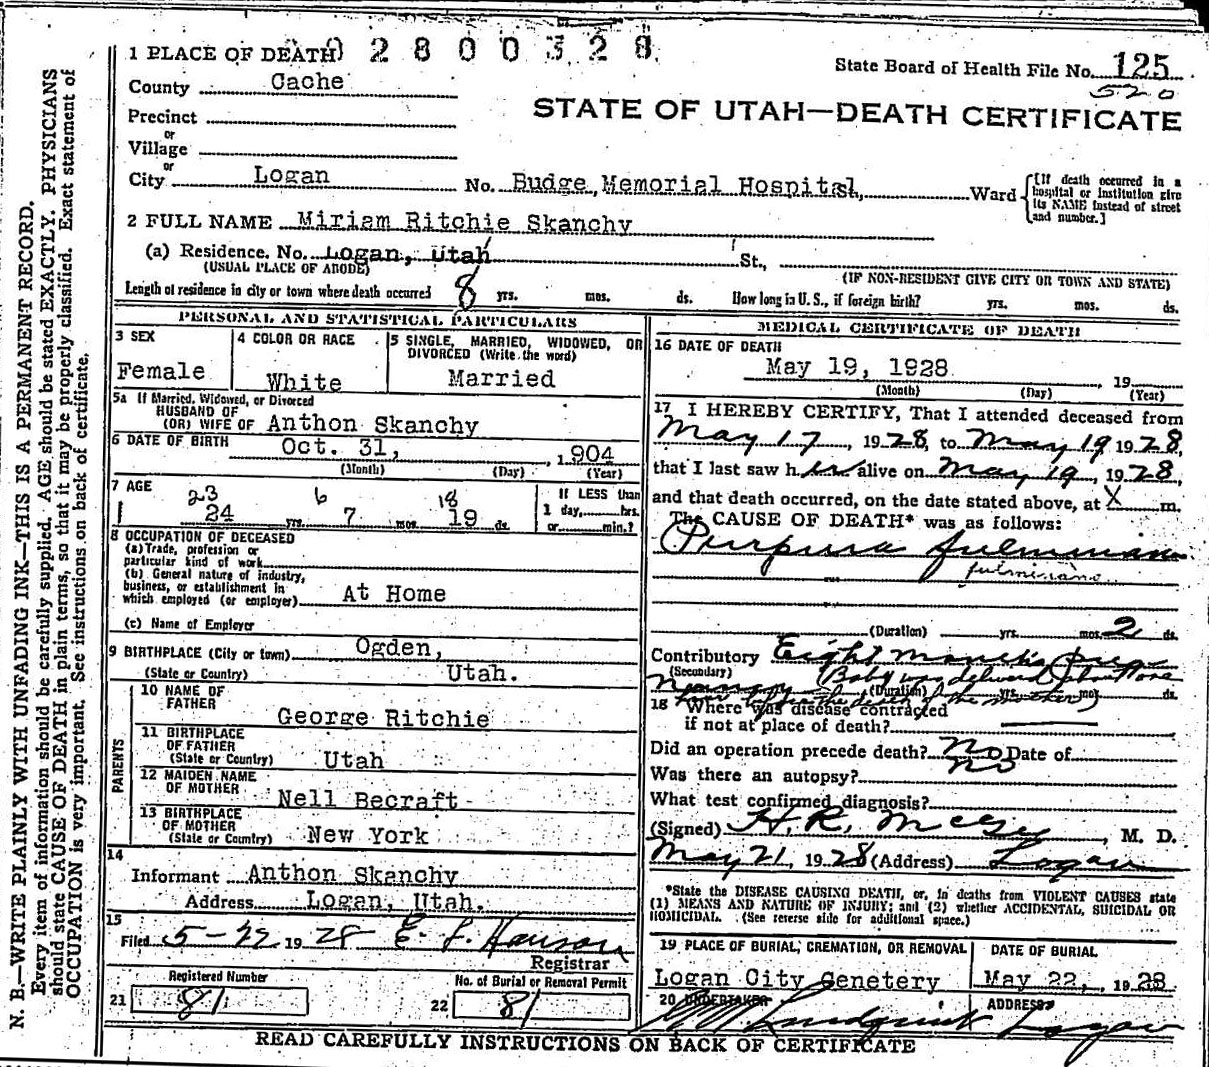 02800328
1 PLACE OF DEATH
State Board of Health File No. 125
520
County Cache
STATE OF UTAH—DEATH CERTIFICATE
Precinct
or
Village
or
City Logan No. Budge Memorial Hospital, Ward
[If death occurred in a
hospital or institution give
its NAME instead of street
and number.]
2 FULL NAME Miriam Ritchie Skanchy
(a) Residence. No. Logan, Utah St.,
(USUAL PLACE OF ABODE) (IF NON-RESIDENT GIVE CITY OR TOWN AND STATE)
Length of residence in city or town where death occurred 8 yrs. mos. ds. How long in U. S., if foreign birth? yrs. mos. ds.
PERSONAL AND STATISTICAL PARTICULARS
3 SEX
Female
4 COLOR OR RACE
White
5 SINGLE, MARRIED, WIDOWED, OR
DIVORCED (Write the word)
Married
5a If Married, Widowed, or Divorced
HUSBAND OF
(OR) WIFE OF Anthon Skanchy
6 DATE OF BIRTH Oct. 31, 1904
(Month) (Day) (Year)
7 AGE
23 6 18
24 yrs. 7 mos. 19 ds.
If LESS than
1 day, hrs.
or min.?
8 OCCUPATION OF DECEASED
(a) Trade, profession or
particular kind of work
(b) General nature of industry,
business, or establishment in
which employed (or employer) At Home
(c) Name of Employer
9 BIRTHPLACE (City or town) Ogden,
(State or Country) Utah.
PARENTS
10 NAME OF
FATHER George Ritchie
11 BIRTHPLACE
OF FATHER
(State or Country) Utah
12 MAIDEN NAME
OF MOTHER Nell Becraft
13 BIRTHPLACE
OF MOTHER
(State or Country) New York
14
Informant Anthon Skanchy
Address Logan, Utah.
15
Filed 5-22 1928 E. L. Hanson
Registrar
Registered Number
21 81
No. of Burial or Removal Permit
22 81
MEDICAL CERTIFICATE OF DEATH
16 DATE OF DEATH
May 19, 1928 , 19
(Month) (Day) (Year)
17 I HEREBY CERTIFY, That I attended deceased from
May 17, 1928, to May 19 1928,
that I last saw her alive on May 19, 1928,
and that death occurred, on the date stated above, at X m.
The CAUSE OF DEATH* was as follows:
Purpura fulminans
fulminans
(Duration) yrs. mos. 2 ds.
Contributory Eight months preg
(Secondary) (Baby was delivered
nancy (Duration) yrs. mos. ds.
the death of the mother)
18 Where was disease contracted
if not at place of death?
Did an operation precede death? no Date of
Was there an autopsy? no
What test confirmed diagnosis?
(Signed) H. R. McGee, M. D.
May 21, 1928 (Address) Logan
*State the DISEASE CAUSING DEATH, or, in deaths from VIOLENT CAUSES state
(1) MEANS AND NATURE OF INJURY; and (2) whether ACCIDENTAL, SUICIDAL OR
HOMICIDAL. (See reverse side for additional space.)
19 PLACE OF BURIAL, CREMATION, OR REMOVAL
Logan City Cemetery
DATE OF BURIAL
May 22, 1928
20 UNDERTAKER
Lundquist
ADDRESS
Logan
READ CAREFULLY INSTRUCTIONS ON BACK OF CERTIFICATE
N. B.—WRITE PLAINLY WITH UNFADING INK—THIS IS A PERMANENT RECORD.
Every item of information should be carefully supplied. AGE should be stated EXACTLY. PHYSICIANS
should state CAUSE OF DEATH in plain terms, so that it may be properly classified. Exact statement of
OCCUPATION is very important. See instructions on back of certificate.